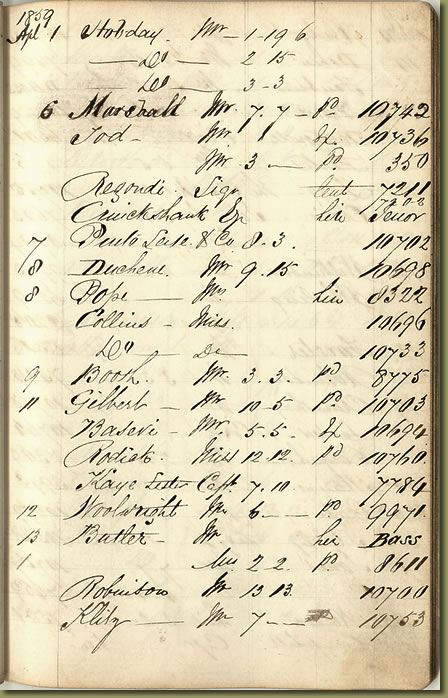 1859
Apl 1 Holiday Mr 1-19 6
Do 2 15
Do 3-3
6 Marshall Mr. 7.7 - Pd 10742
Tod - Mr 10736
Mr 3 — Pd 350
Regondi Sigr lent 7211
Cruickshank Esq Tenor
7 8.3. 10702
8 Duchene. Mr 9.15 10698
8 Pope — Mr. hire 8322
Collins - Miss. 10696
Do De 10733
9 Booth. Mr. 3.3. Pd. 8775
11 Gilbert — Mr 10-5 Pd. 10703
Basevi - Mr. 5.5 - 10694
Miss 12.12. Pd 10760
Kaye Capt. 7.10. 7784
12 Woolwright Mr 6 — Pd 9971
13 Butler - Mr hire Bass
1 2 2 P. 8611
Robinson Mr 13 13. 10700
Klitz — Mr 7 — 10753